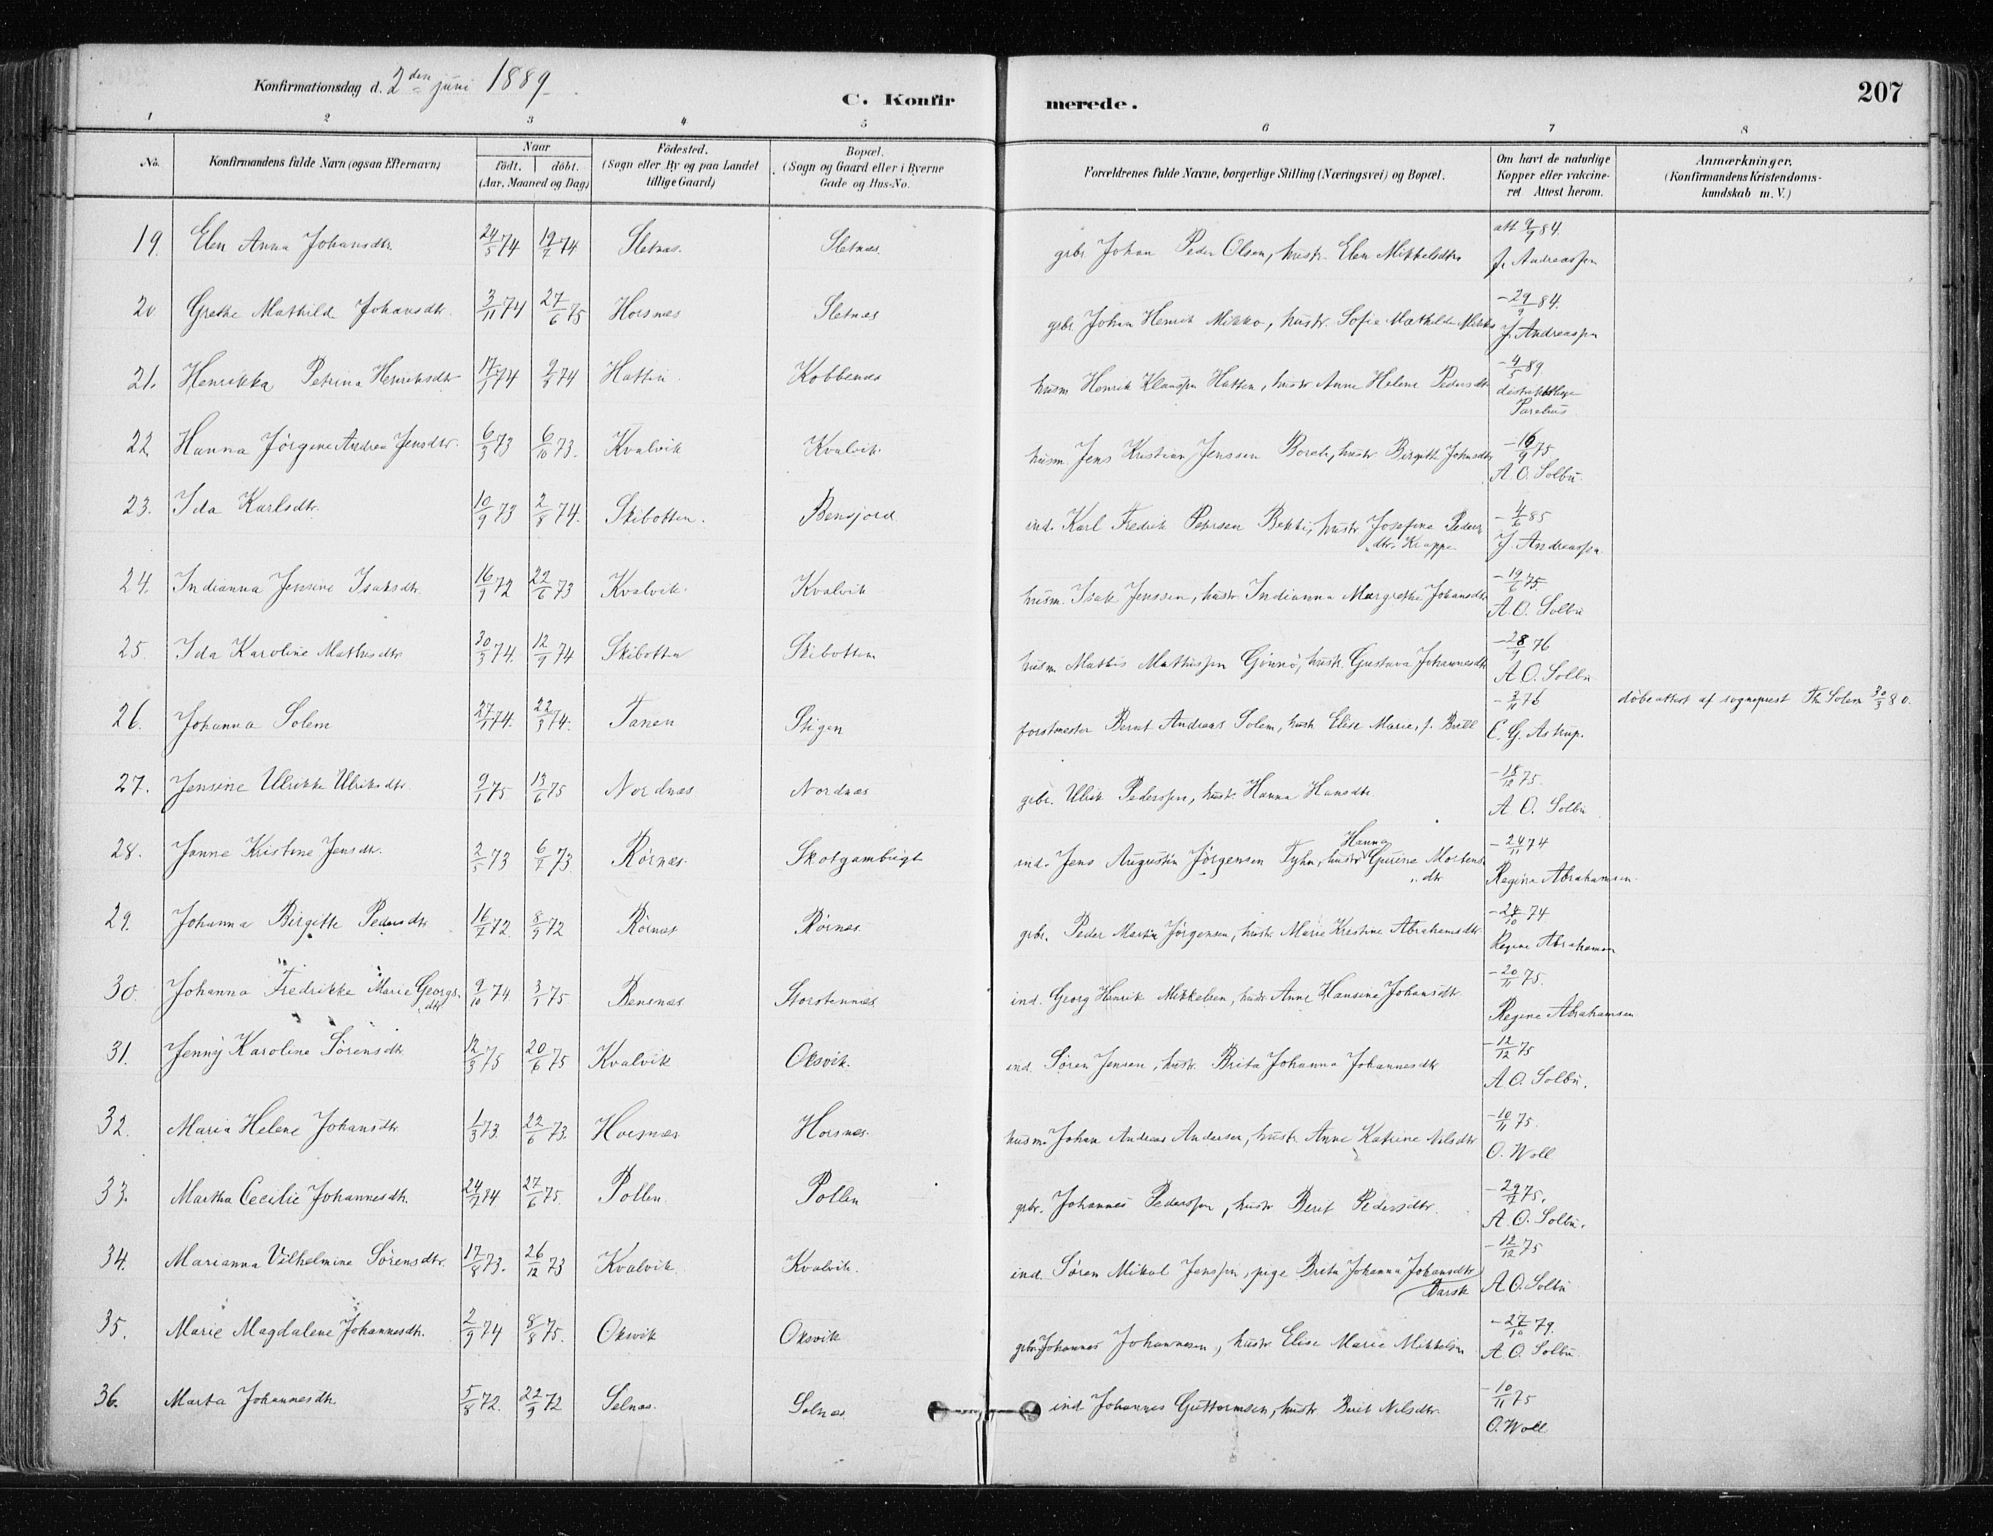 Konfirmationsdag d. 2den juni 1889.
C. Konfirmerede.
207
1 2 3 4 5 6 7 8
No.
Konfirmandens fulde Navn (ogsaa Efternavn)
Naar
födt. döbt.
(Aar, Maaned og Dag)
Födested.
(Sogn eller By og paa Landet
tillige Gaard)
Bopæl.
(Sogn og Gaard eller i Byerne
Gade og Hus-No.
Forældrenes fulde Navne, borgerlige Stilling (Næringsvei) og Bopæl.
Om havt de naturlige
Kopper eller vakcine-
ret Attest herom.
Anmærkninger.
(Konfirmandens Kristendoms-
kundskab m. V.)
19. Elen Anna Johansdtr. 24/5 74 19/7 74 Sletnæs. Sletnæs. gbr. Johan Peder Olsen, hustr. Elen Mikkelsdtr. att 9/9 84. J. Andreassen
20 Grethe Mathilde Johansdtr. 3/11 74 27/6 75 Horsnæs Sletnæs gbr. Johan Henrik Mikko, hustr. Sofie Mathilde - 29/9 84. J. Andreassen
21. Henrikka Petrina Henriksdtr 74 74 Hatten. Kobbenæs husm. Henrik Klaussen Hatten, hustr Anne Helene Pedersdtr - 4/5 89.
22 Hanna Jörgine Andrea Jensdtr. 6/3 73 6/10 73. Kvalvik Kvalvik. husm. Jens Kristian Jenssen Borch, hustr Birgitte Johnsdtr - 16/9 75 A. O. Solbu.
23. Ida Karlsdtr. 10/9 73 2/8 74. Skibotten. Bensjord. ind. Karl Fredrik Petersen Bekki, hustr Josefine Peders dtr. Krappe - 4/6 85 J. Andreassen
24. Indianna Jensine Isaksdtr. 16/9 72 22/6 73 Kvalvik. Kvalvik husm. Isak Jenssen, hustr Indianna Margrethe Johansdtr - 19/6 75. A. O. Solbu
25 Ida Karoline Mathisdtr 30/3 74. 12/9 74 Skibotten Skibotten husm Mathis Mathissen Ginnö, hustr. Gustava Johannesdtr - 28/9 76 A O. Solbu
26. Johanna Solem 27/1 74. 22/3 74. Tanen Stigen forstmester Bernt Andreas Solem, hustr Elise Marie, f. Bull - 3/11 76 C. G. Astrup. döbeattest af sogneprest Th Solem 30/3 80.
27. Jensine Ulrikke Ulriksdtr. 9/1 75 13/6 75 Nordnæs Nordnæs gbr. Ulrik Pederssen, hustr. Hanna Hansdtr - 15/12 75. A O. Solbu
28. Janne Kristine Jensdtr. 2/5 73 6/7 73. Rörnæs. Skotgambugt ind. Jens Augustin Jörgensen Fyhn, hustr Hanna Gurine Mortens dtr - 24/11 74 Regine Abrahamsen.
29. Johanna Birgitte Pedersdtr 16/ 72. 8/9 72 Rörnæs Rörnæs. gbr. Peder Martin Jörgensen, hustr Marie Kristine Abrahamsdtr - 24/10 74 Regine Abrahamsen
30. Johanna Fredrikke Marie Georgs. dtr 9/10 74 3/1 75 Bensnæs Storstennæs ind. Georg Henrik Mikkelsen, hustr Anne Hansena Johansdtr - 20/11 75. Regine Abrahamsen
31. Jenny Karoline Sörensdtr 12/3 75 20/6 75 Kvalvik Oksvik. ind. Sören Jensen, hustr. Brita Johanna Johannesdtr - 12/12 75 A O. Solbu.
32. Maria Helene Johansdtr. 1/3 73. 22/6 73. Horsnæs. Horsnæs. husm. Johan Andreas Andersen, hustr. Anne Katrine Nilsdtr - 10/11 75. O. Woll
33. Martha Cecilie Johannesdtr. 24/ 74 27/6 75. Pollen. Pollen gbr. Johannes Pederssen, hustr Berit Pedersdtr. - 29/ 75. A. O. Solbu.
34. Marianna Vilhelmine Sörensdtr. 17/8 73. 26/12 73 Kvalvik. Kvalvik. ind. Sören Mikal Jenssen, pige Brita Johanna Johansdtr Garsk - 12/12 75 A O. Solbu
35. Marie Magdalene Johannesdtr. 2/9 74 8/8 75. Oksvik Oksvik gbr. Johannes Johannesen, hustr Elise Marie Mikkelsen - 27/10 79. A O. Solbu.
36. Marta Johannesdtr. 5/8 72. 22/9 72 Selnæs. Selnæs ind Johannes Guttormsen, hustr Berit Nilsdtr. - 10/11 75 O. Woll